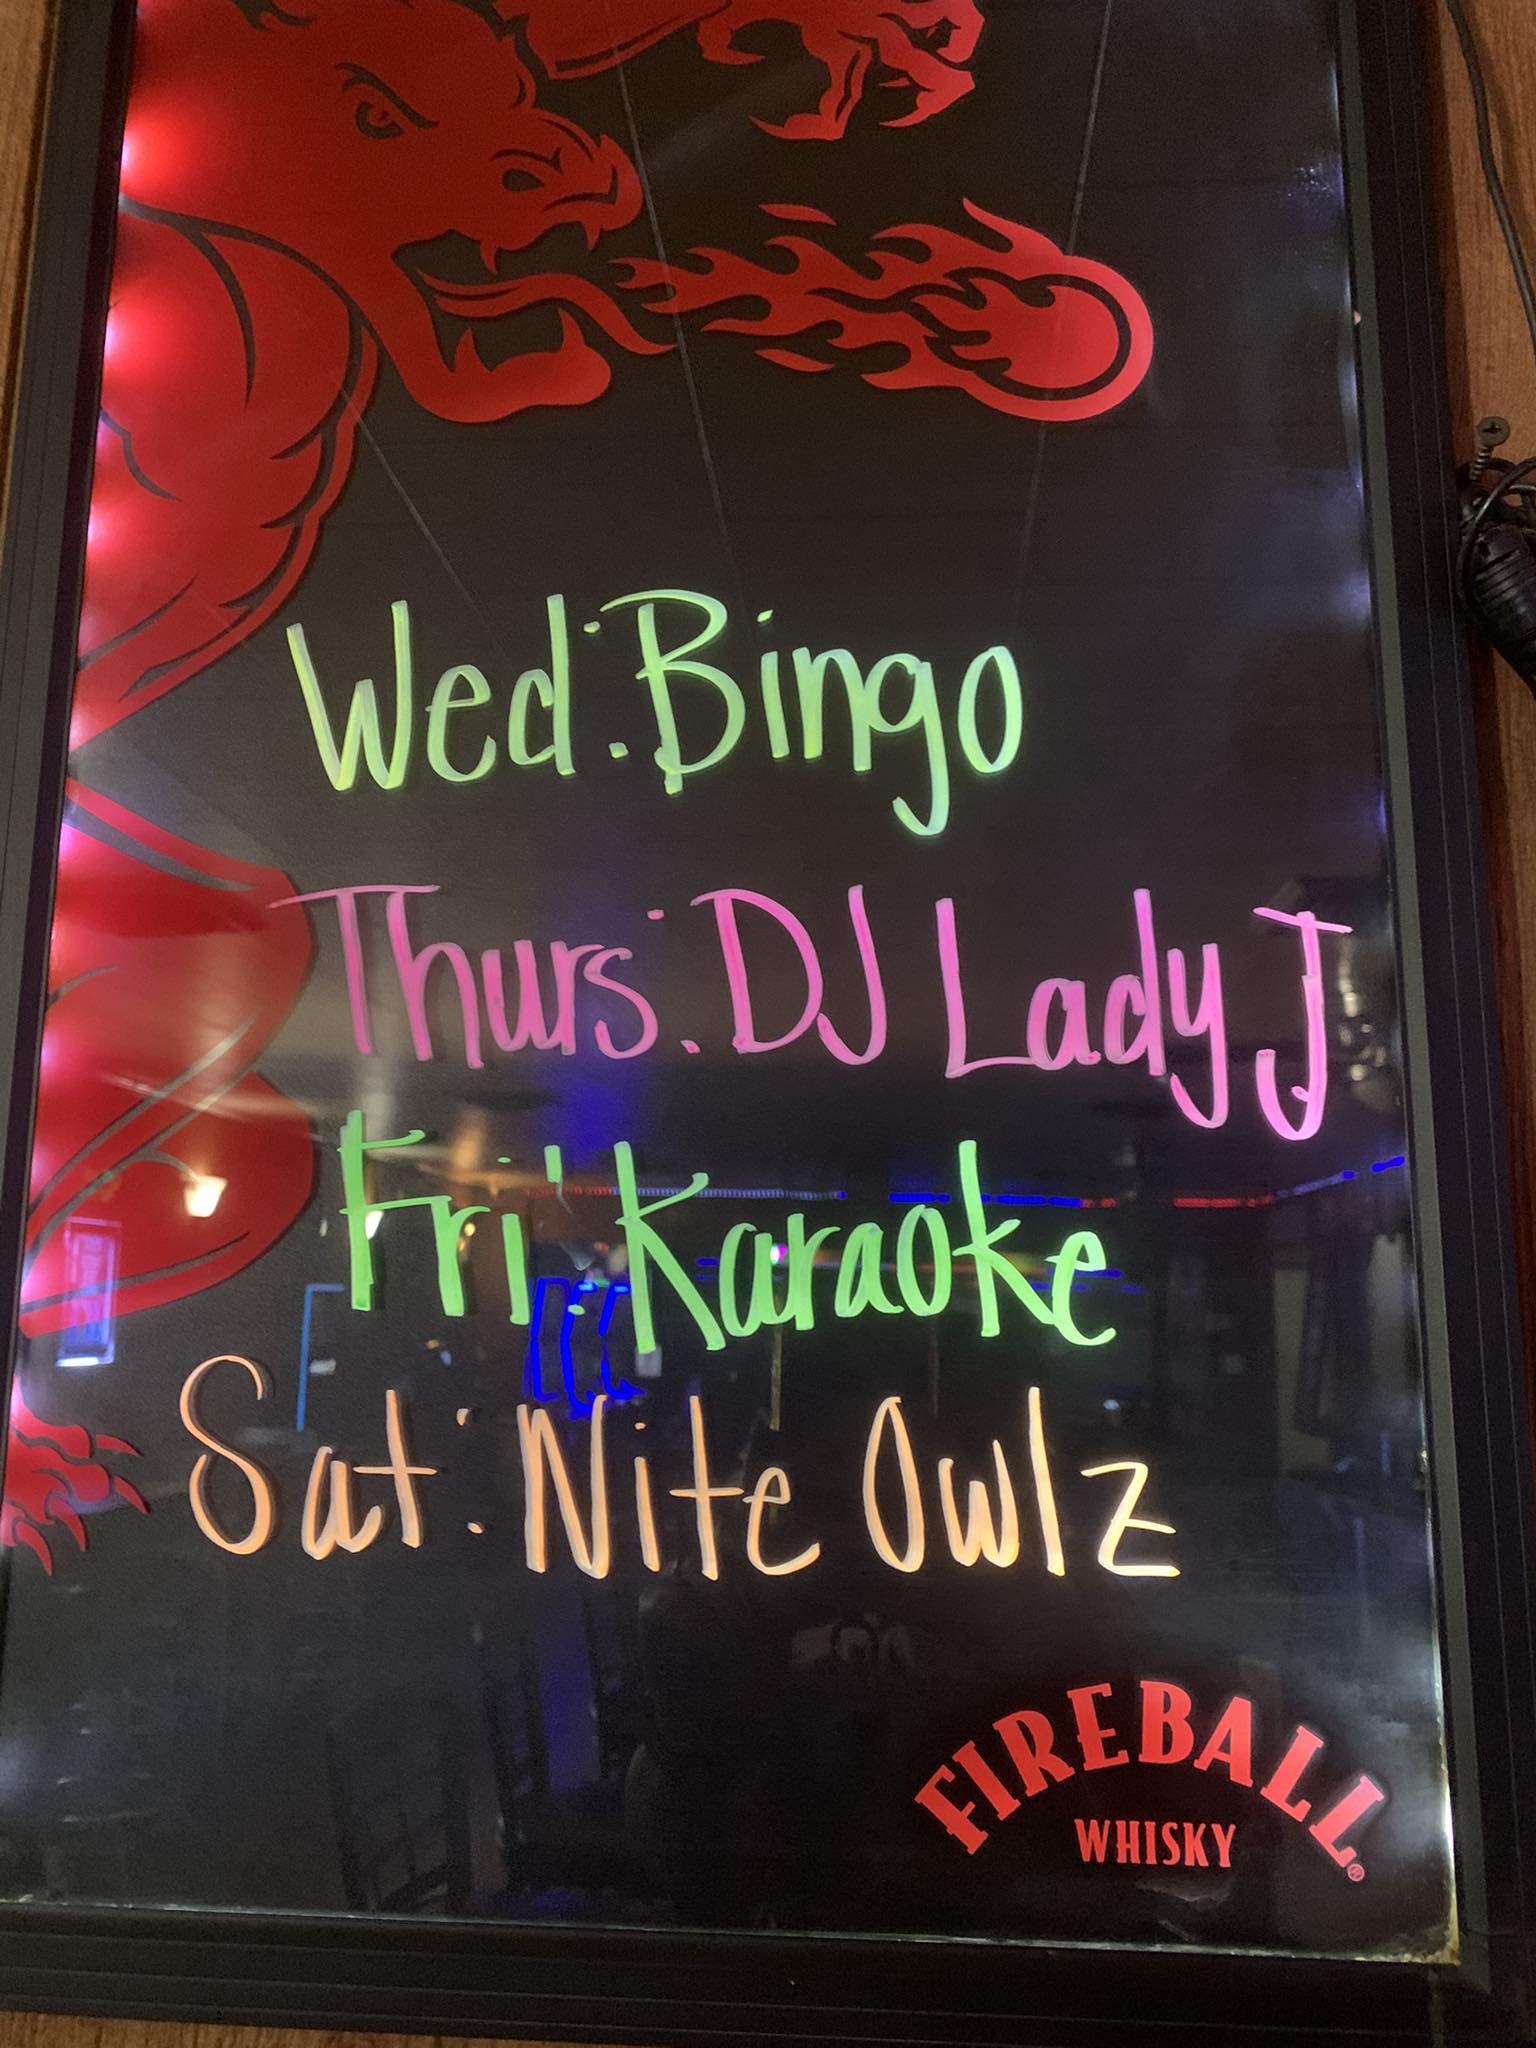 Wed: Bingo
Thurs: DJ Lady J
Fri: Karaoke
Sat: Nite Owlz
FIREBALL®
WHISKY